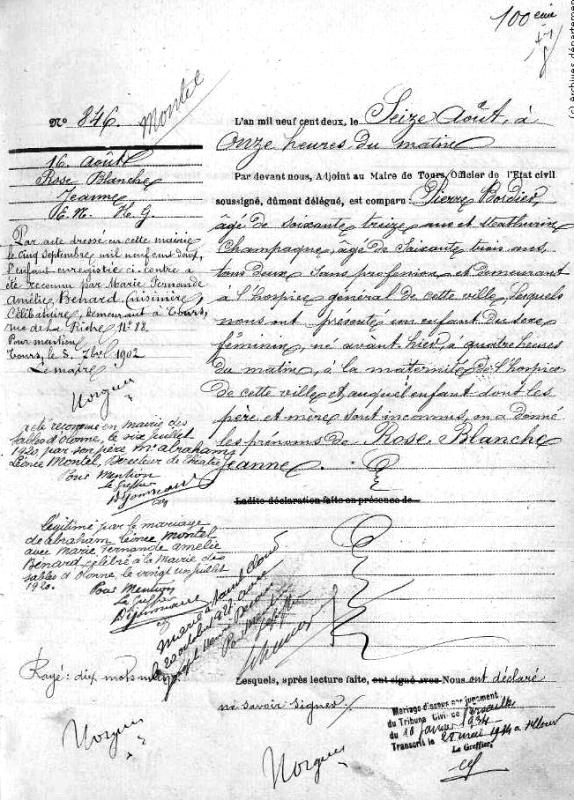 100 eme
Nº 846.
Montel
16 Août
Rose Blanche
Jeanne
E. N. H. G.
Par acte dressé en cette mairie
le cinq Septembre mil neuf cent deux,
l'enfant enregistrée ci-contre a
été reconnue par Marie Fernande
Amélie Benard, cuisinière,
célibataire, demeurant à Tours,
rue de la Riche Nº 88.
Pour mention
Tours, le 5 7bre 1902
Le maire
Norguès
reconnue en mairie des
Sables d'Olonne, le six juillet
1920, par son père Mr Abraham
Léonce Montel, Directeur de théâtre
Pour Mention
Le Greffier
légitimée par le mariage
de Abraham Léonce Montel
avec Marie Fernande Amélie
Benard célébré à la Mairie des
Sables d'Olonne, le vingt un juillet
1920. Pour Mention
Le Greffier
Mariée à Saint Cloud
le 20 octobre 1921 avec
Pour Mention
Le Greffier
Rayé : dix mots nuls
Norguès
L'an mil neuf cent deux, le Seize Août, à
Onze heures du matin
Par devant nous, Adjoint au Maire de Tours, Officier de l'Etat civil
soussigné, dûment délégué, est comparu : Pierre Bordier,
âgé de soixante treize ans et Mathurin
Champagne, âgé de soixante trois ans,
tous deux sans profession et demeurant
à l'hospice général de cette ville, lesquels
nous ont présenté un enfant du sexe
féminin, né avant hier, à quatre heures
du matin, à la maternité de l'hospice
de cette ville et auquel enfant dont les
père et mère sont inconnus, on a donné
les prénoms de Rose Blanche
Jeanne.
Ladite déclaration faite en présence de
Lesquels, après lecture faite, ont signé avec Nous ont déclaré
ne savoir signer.
Norguès
Mariage dissous par jugement
du Tribunal Civil de Versailles
du 10 janvier 1934
Transcrit le 22 mai 1934 à
Le Greffier
(c) Archives départementales